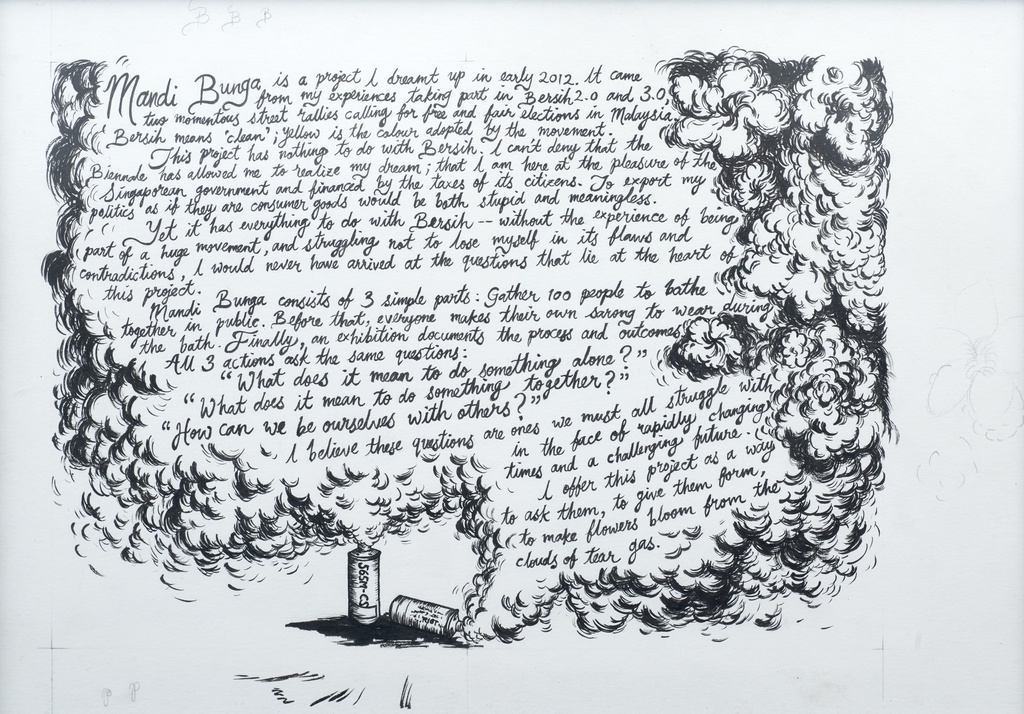 Mandi Bunga is a project I dreamt up in early 2012. It came
from my experiences taking part in Bersih 2.0 and 3.0,
two momentous street rallies calling for free and fair elections in Malaysia.
Bersih means 'clean'; yellow is the colour adopted by the movement.
This project has nothing to do with Bersih. I can't deny that the
Biennale has allowed me to realize my dream; that I am here at the pleasure of the
Singaporean government and financed by the taxes of its citizens. To export my
politics as if they are consumer goods would be both stupid and meaningless.
Yet it has everything to do with Bersih -- without the experience of being
part of a huge movement, and struggling not to lose myself in its flaws and
contradictions, I would never have arrived at the questions that lie at the heart of
this project.
Mandi Bunga consists of 3 simple parts: Gather 100 people to bathe
together in public. Before that, everyone makes their own sarong to wear during
the bath. Finally, an exhibition documents the process and outcomes.
All 3 actions ask the same questions:
"What does it mean to do something alone?"
"What does it mean to do something together?"
"How can we be ourselves with others?"
I believe these questions are ones we must all struggle with
in the face of rapidly changing
times and a challenging future.
I offer this project as a way
to ask them, to give them form,
to make flowers bloom from the
clouds of tear gas.